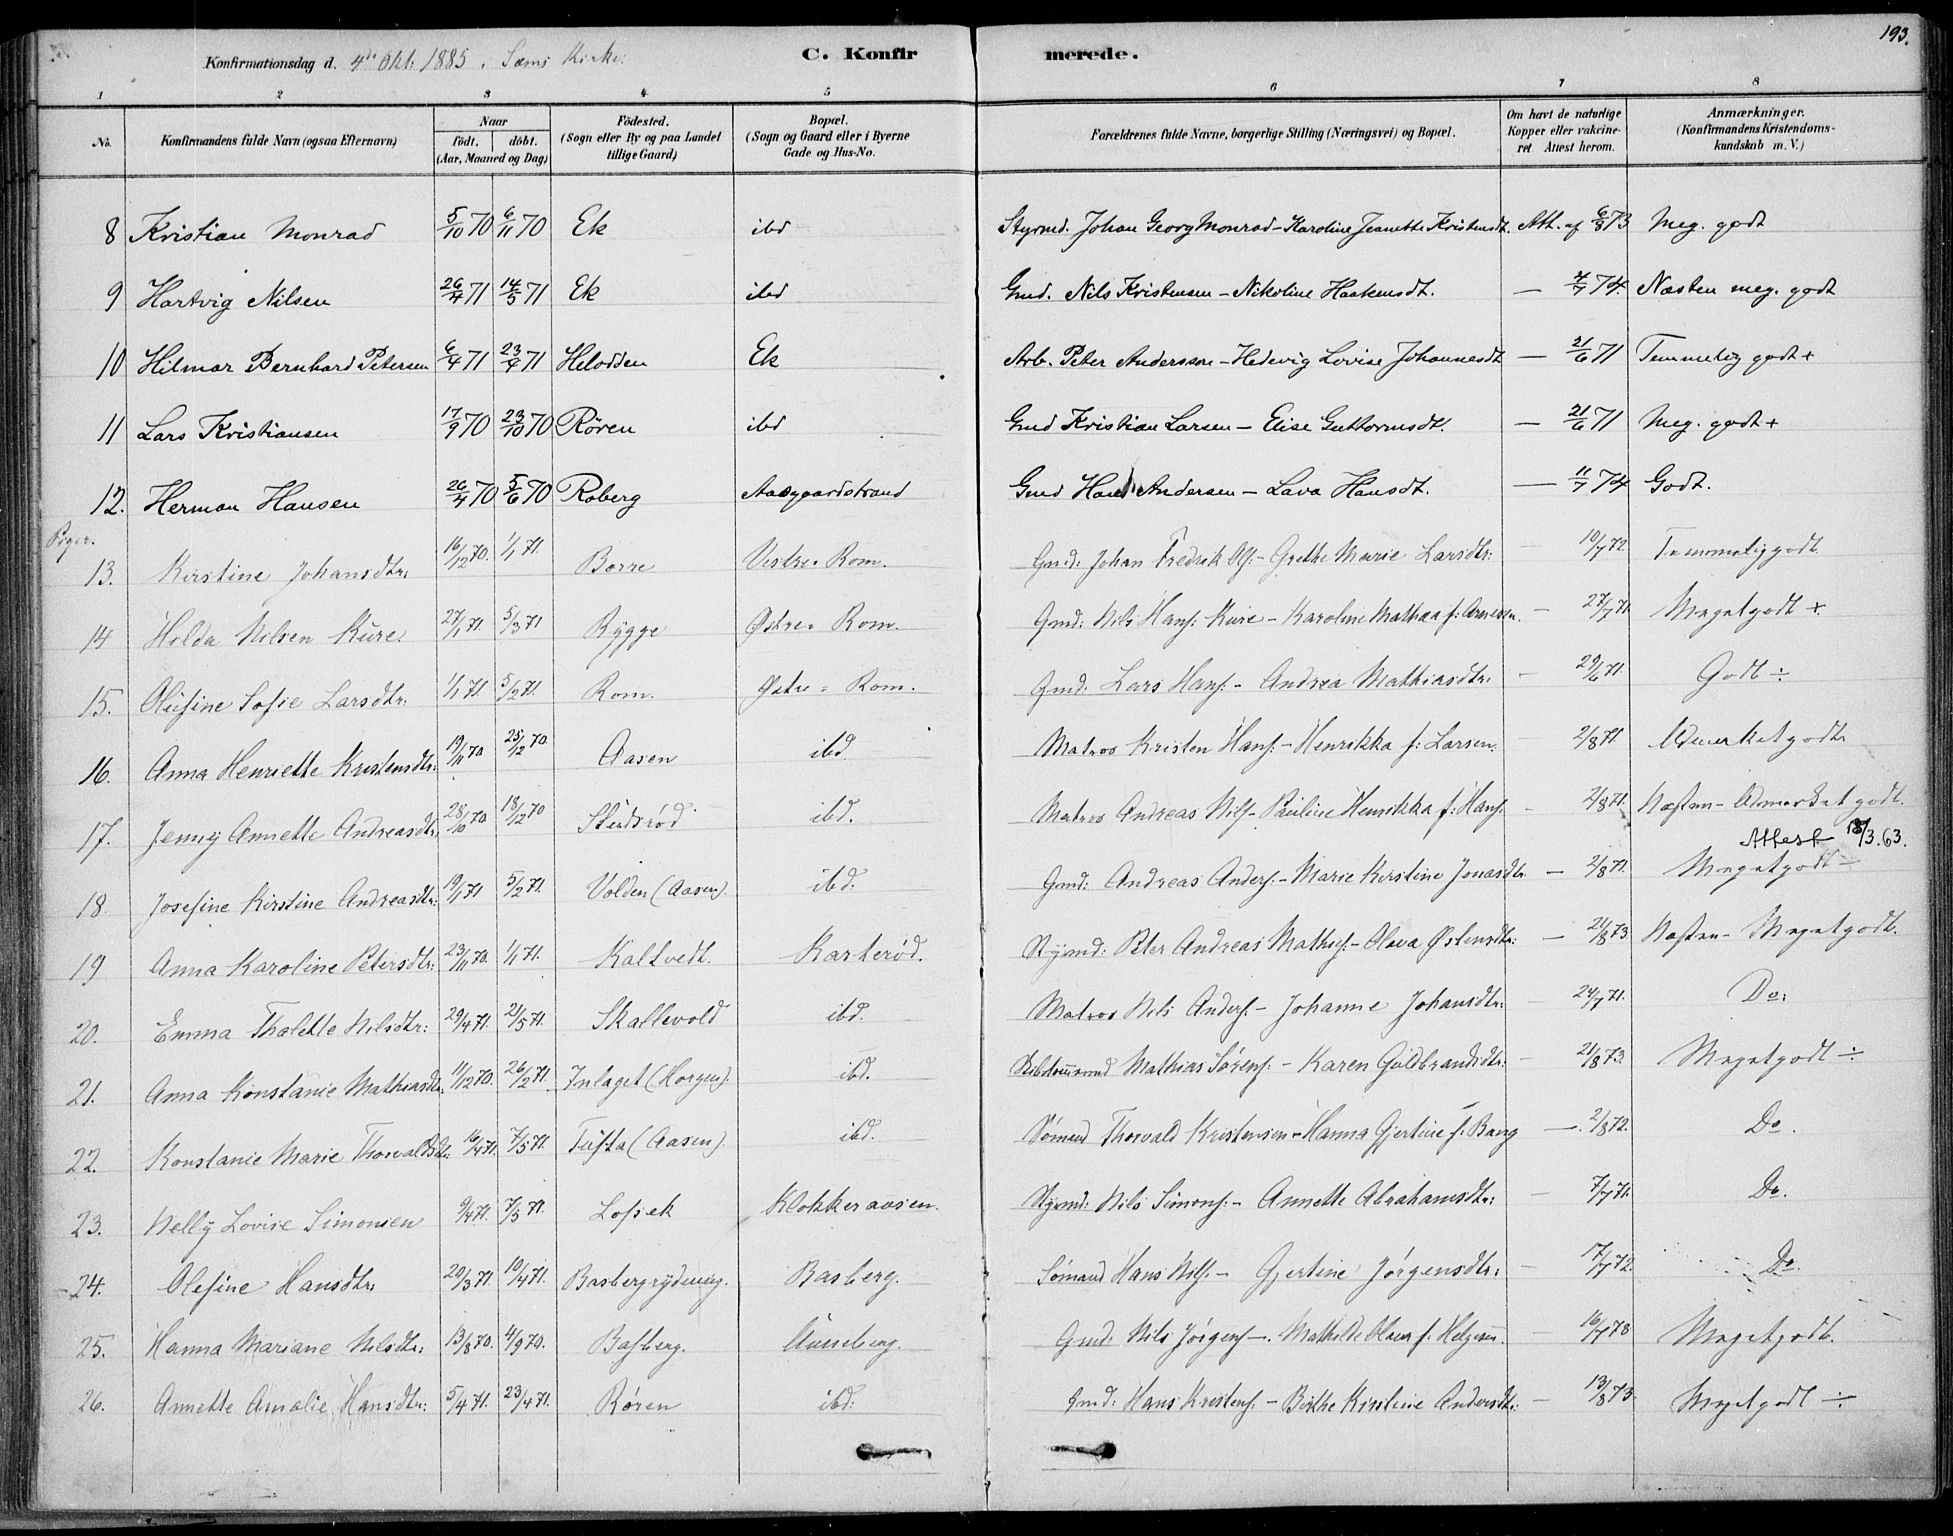 193.
Konfirmationsdag d. 4de Okt. 1885. Sems Kirke.
C. Konfirmerede.
1 2 3 4 5 6 7 8
No. Konfirmandens fulde Navn (ogsaa Efternavn) Naar födt, döbt. (Aar, Maaned og Dag) Födested. (Sogn eller By og paa Landet tillige Gaard) Bopæl. (Sogn og Gaard eller i Byerne Gade og Hus-No. Forældrenes fulde Navne, borgerlige Stilling (Næringsvei) og Bopæl. Om havt de naturlige Kopper eller vakcineret Attest herom. Anmærkninger. (Konfirmandens Kristendomskundskab m. V.)
8 Kristian Monrad 5/10 70 6/11 70 Ek ibd Styrmd. Johan Georg Monrad - Karoline Jeanette Kristensdt. Att. af 6/8 73 Meg. godt
9 Hartvig Nilsen 26/4 71 14/5 71 Ek ibd Gmd. Nils Kristensen - Nikoline Haakensdt. — 4/7 74. Næsten meg. godt
10 Hilmar Bernhard Petersen 6/4 71 23/4 71 Helodden Ek Arb. Peter Andersson - Hedevig Lovise Johannesdt — 21/6 71 Temmelig godt +
11 Lars Kristiansen 17/9 70 23/10 70 Rören ibd Gmd Kristian Larsen - Elise Guttormsdt. — 21/6 71 Meg. godt +
12. Herman Hansen 26/4 70 5/6 70 Roberg Aasgaardstrand Gmd Hans Andersen - Lava Hansdt. — 11/7 74 Godt.
Piger.
13. Kirstine Johansdtr. 16/12 70. 1/1 71. Borre Vestre Rom. Gmd: Johan Fredrik Ols: - Grethe Marie Larsdtr: — 10/7 72. Temmelig godt.
14 Holda Nilsen Kure. 27/1 71. 5/3 71 Rygge Østre Rom. Gmd: Nils Hans: Kure - Karoline Mathea f: Arnesen. — 27/7 71. Meget godt +
15. Olufine Sofie Larsdtr. 1/1 71 5/2 71. Rom. Østre Rom. Gmd: Lars Hans: - Andrea Mathiasdtr: — 29/6 71. Godt ÷
16. Anna Henriette Kristensdtr: 19/11 70 25/12 70 Aasen ibd Matros Kristen Hans: - Henrikka f: Larsen. — 2/8 71 Udmerket godt
17. Jenny Annette Andreasdtr. 28/10 70 18/12 70 Studsrød ibd. Matros Andreas Nils - Pauline Henrikka f: Hans: — 2/8 71. Næsten - Udmærket godt.
Attest 18/3. 63.
18. Josefine Kirstine Andreasdtr: 19/1 71 5/2 71. Volden (Aasen). ibd: Gmd: Andreas Anders: - Marie Kirstine Jonasdtr. — 2/8 71. Meget godt ÷
19 Anna Karoline Petersdtr: 23/11 70. 1/1 71. Kaltvedt. Karterød. Styrmd: Peter Andreas Maths: - Olava Østensdtr: — 21/8 73 Næsten - Meget godt.
20. Emma Thalette Nilsdtr: 29/4 71. 21/5 71. Skallevold ibd. Matros Nils Anders: - Johanne Johansdtr: — 24/7 71. Do:
21. Anna Konstanie Mathiasdtr. 11/12 70. 26/2 71. Inlaget (Horgen). ibd. Skibstømmmd Mathias Sørens: - Karen Guldbrandsdtr: — 21/8 73. Meget godt ÷
22. Konstanie Marie Thorvaldsdtr. 16/4 71. 7/5 71. Tufta (Aasen). ibd. Sømand Thorvald Kristensen - Hanna Gjertine f: Bang —. 2/8 72. Do.
23. Nelly Lovise Simonsen 9/4 71. 7/5 71. Lofsek Klokkeraasen. Styrmd: Nils Simons: - Annette Abrahamsdtr: — 7/7 71. Do.
24. Olefine Hansdtr: 20/3 71. 10/4 71. Basbergrydning. Basberg. Sømand Hans Nils: - Gjertine Jørgensdtr: — 17/7 72. Do.
25. Hanna Mariane Nilsdtr: 13/8 70. 4/9 70. Basberg. Unneberg. Gmd: Nils Jørgens -. Mathilde Olava f: Helgesen. — 16/7 78 Meget godt.
26. Annette Amalie Hansdtr: 5/4 71. 23/4 71. Røren ibd: Gmd: Hans Kristens: - Birthe Kirstine Andersdtr: — 13/8 73. Meget godt ÷